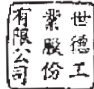 世德工
業股份
有限公司